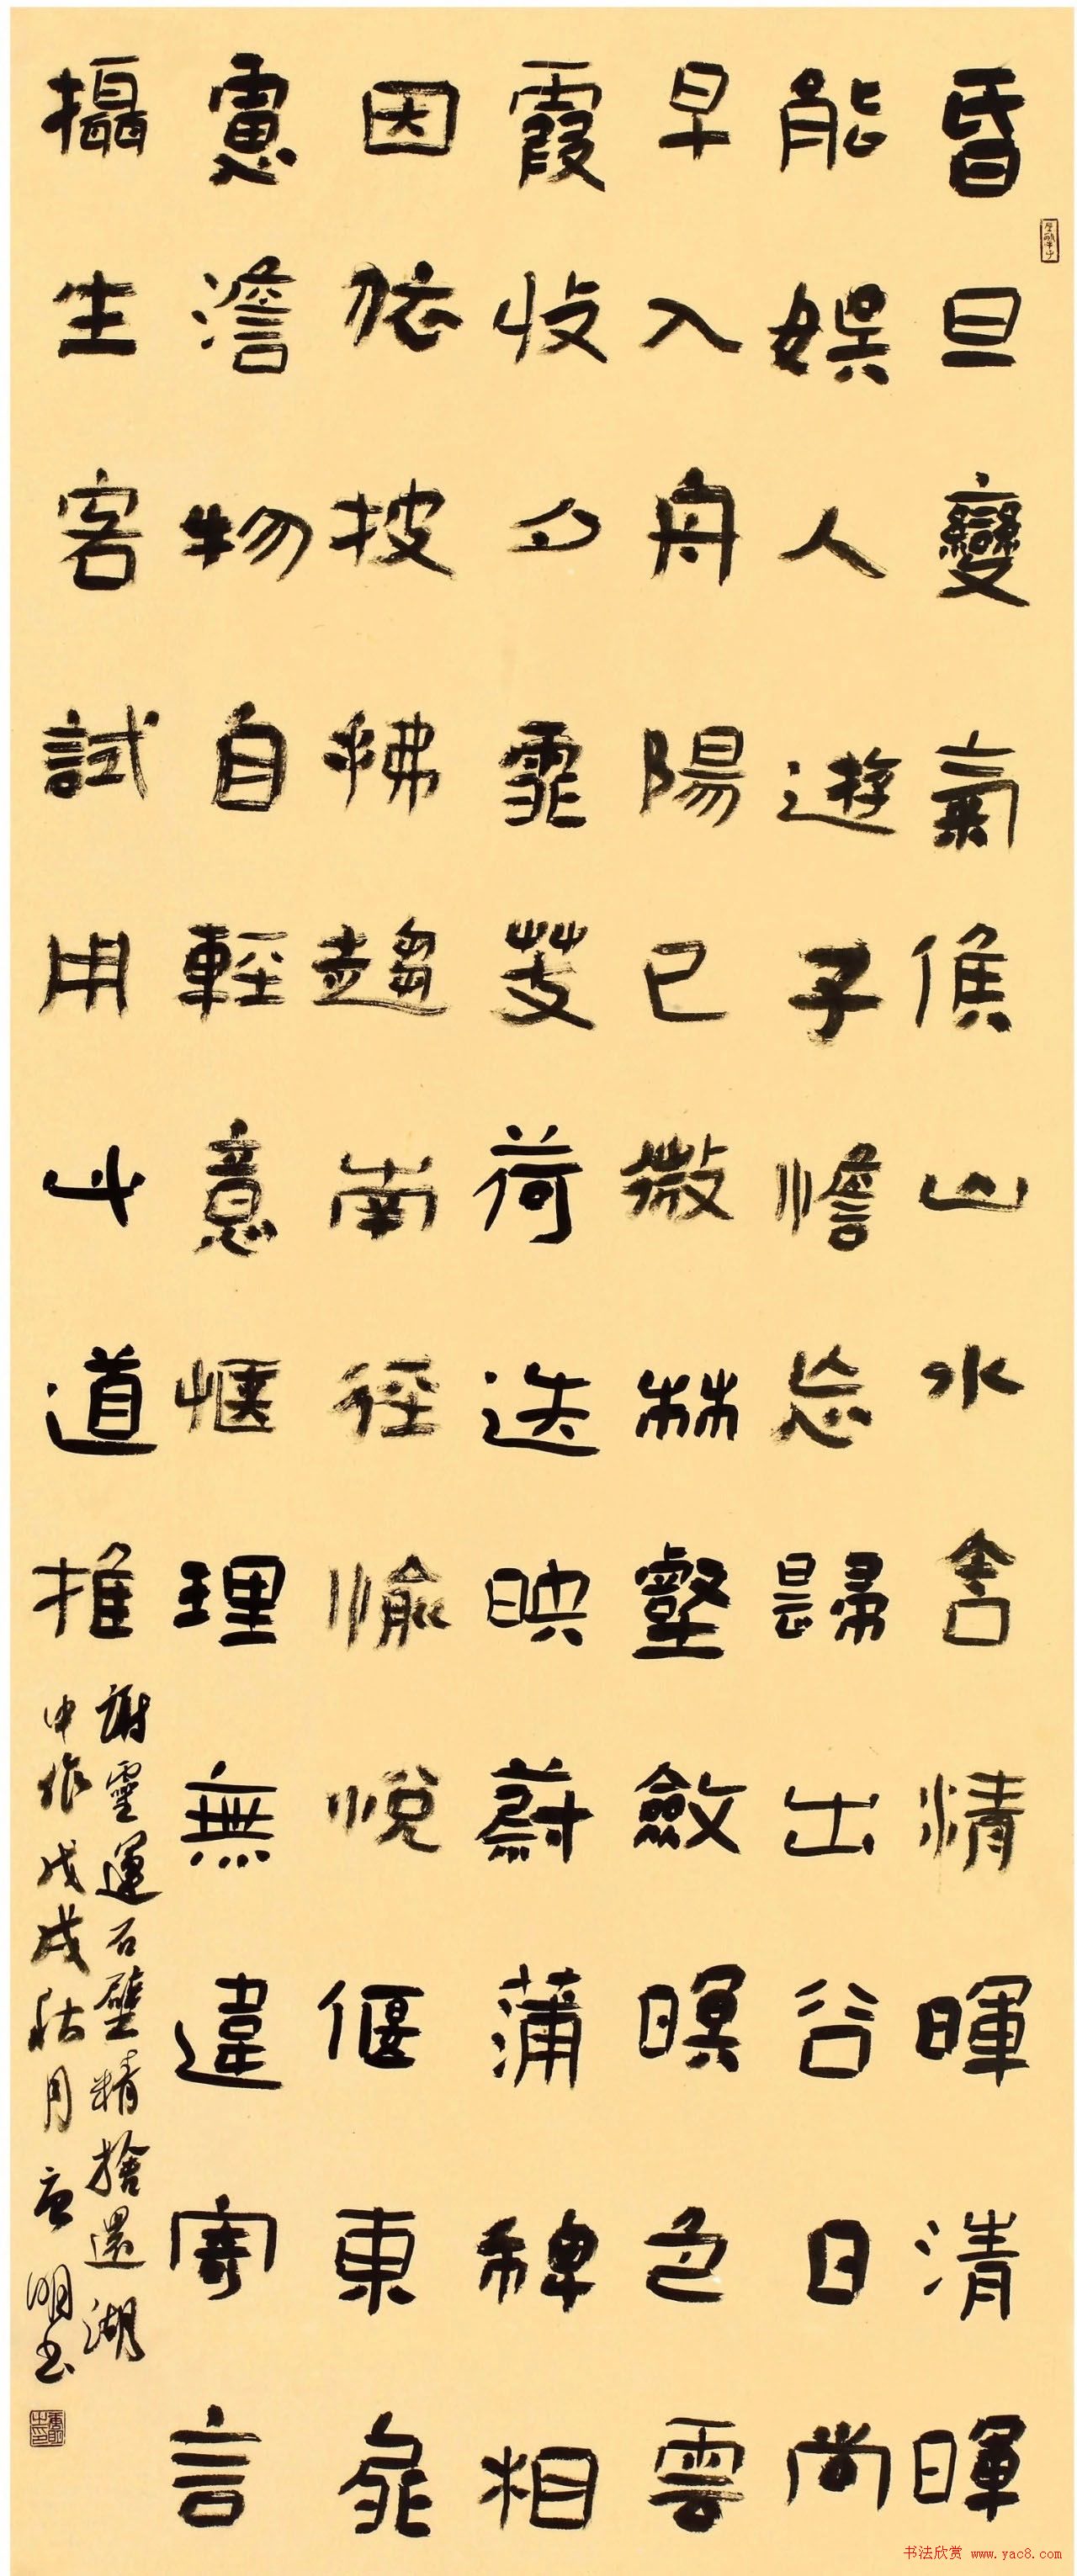 昏旦變氣候山水含清暉清暉
能娛人遊子憺忘歸出谷日尚
早入舟陽已微林壑斂暝色雲
霞收夕霏芰荷迭映蔚蒲稗相
因依披拂趨南徑愉悅偃東扉
慮澹物自輕意愜理無違寄言
攝生客試用此道推
謝靈運石壁精捨還湖
中作戊戌秋月明书
书法欣赏 www.yac8.com